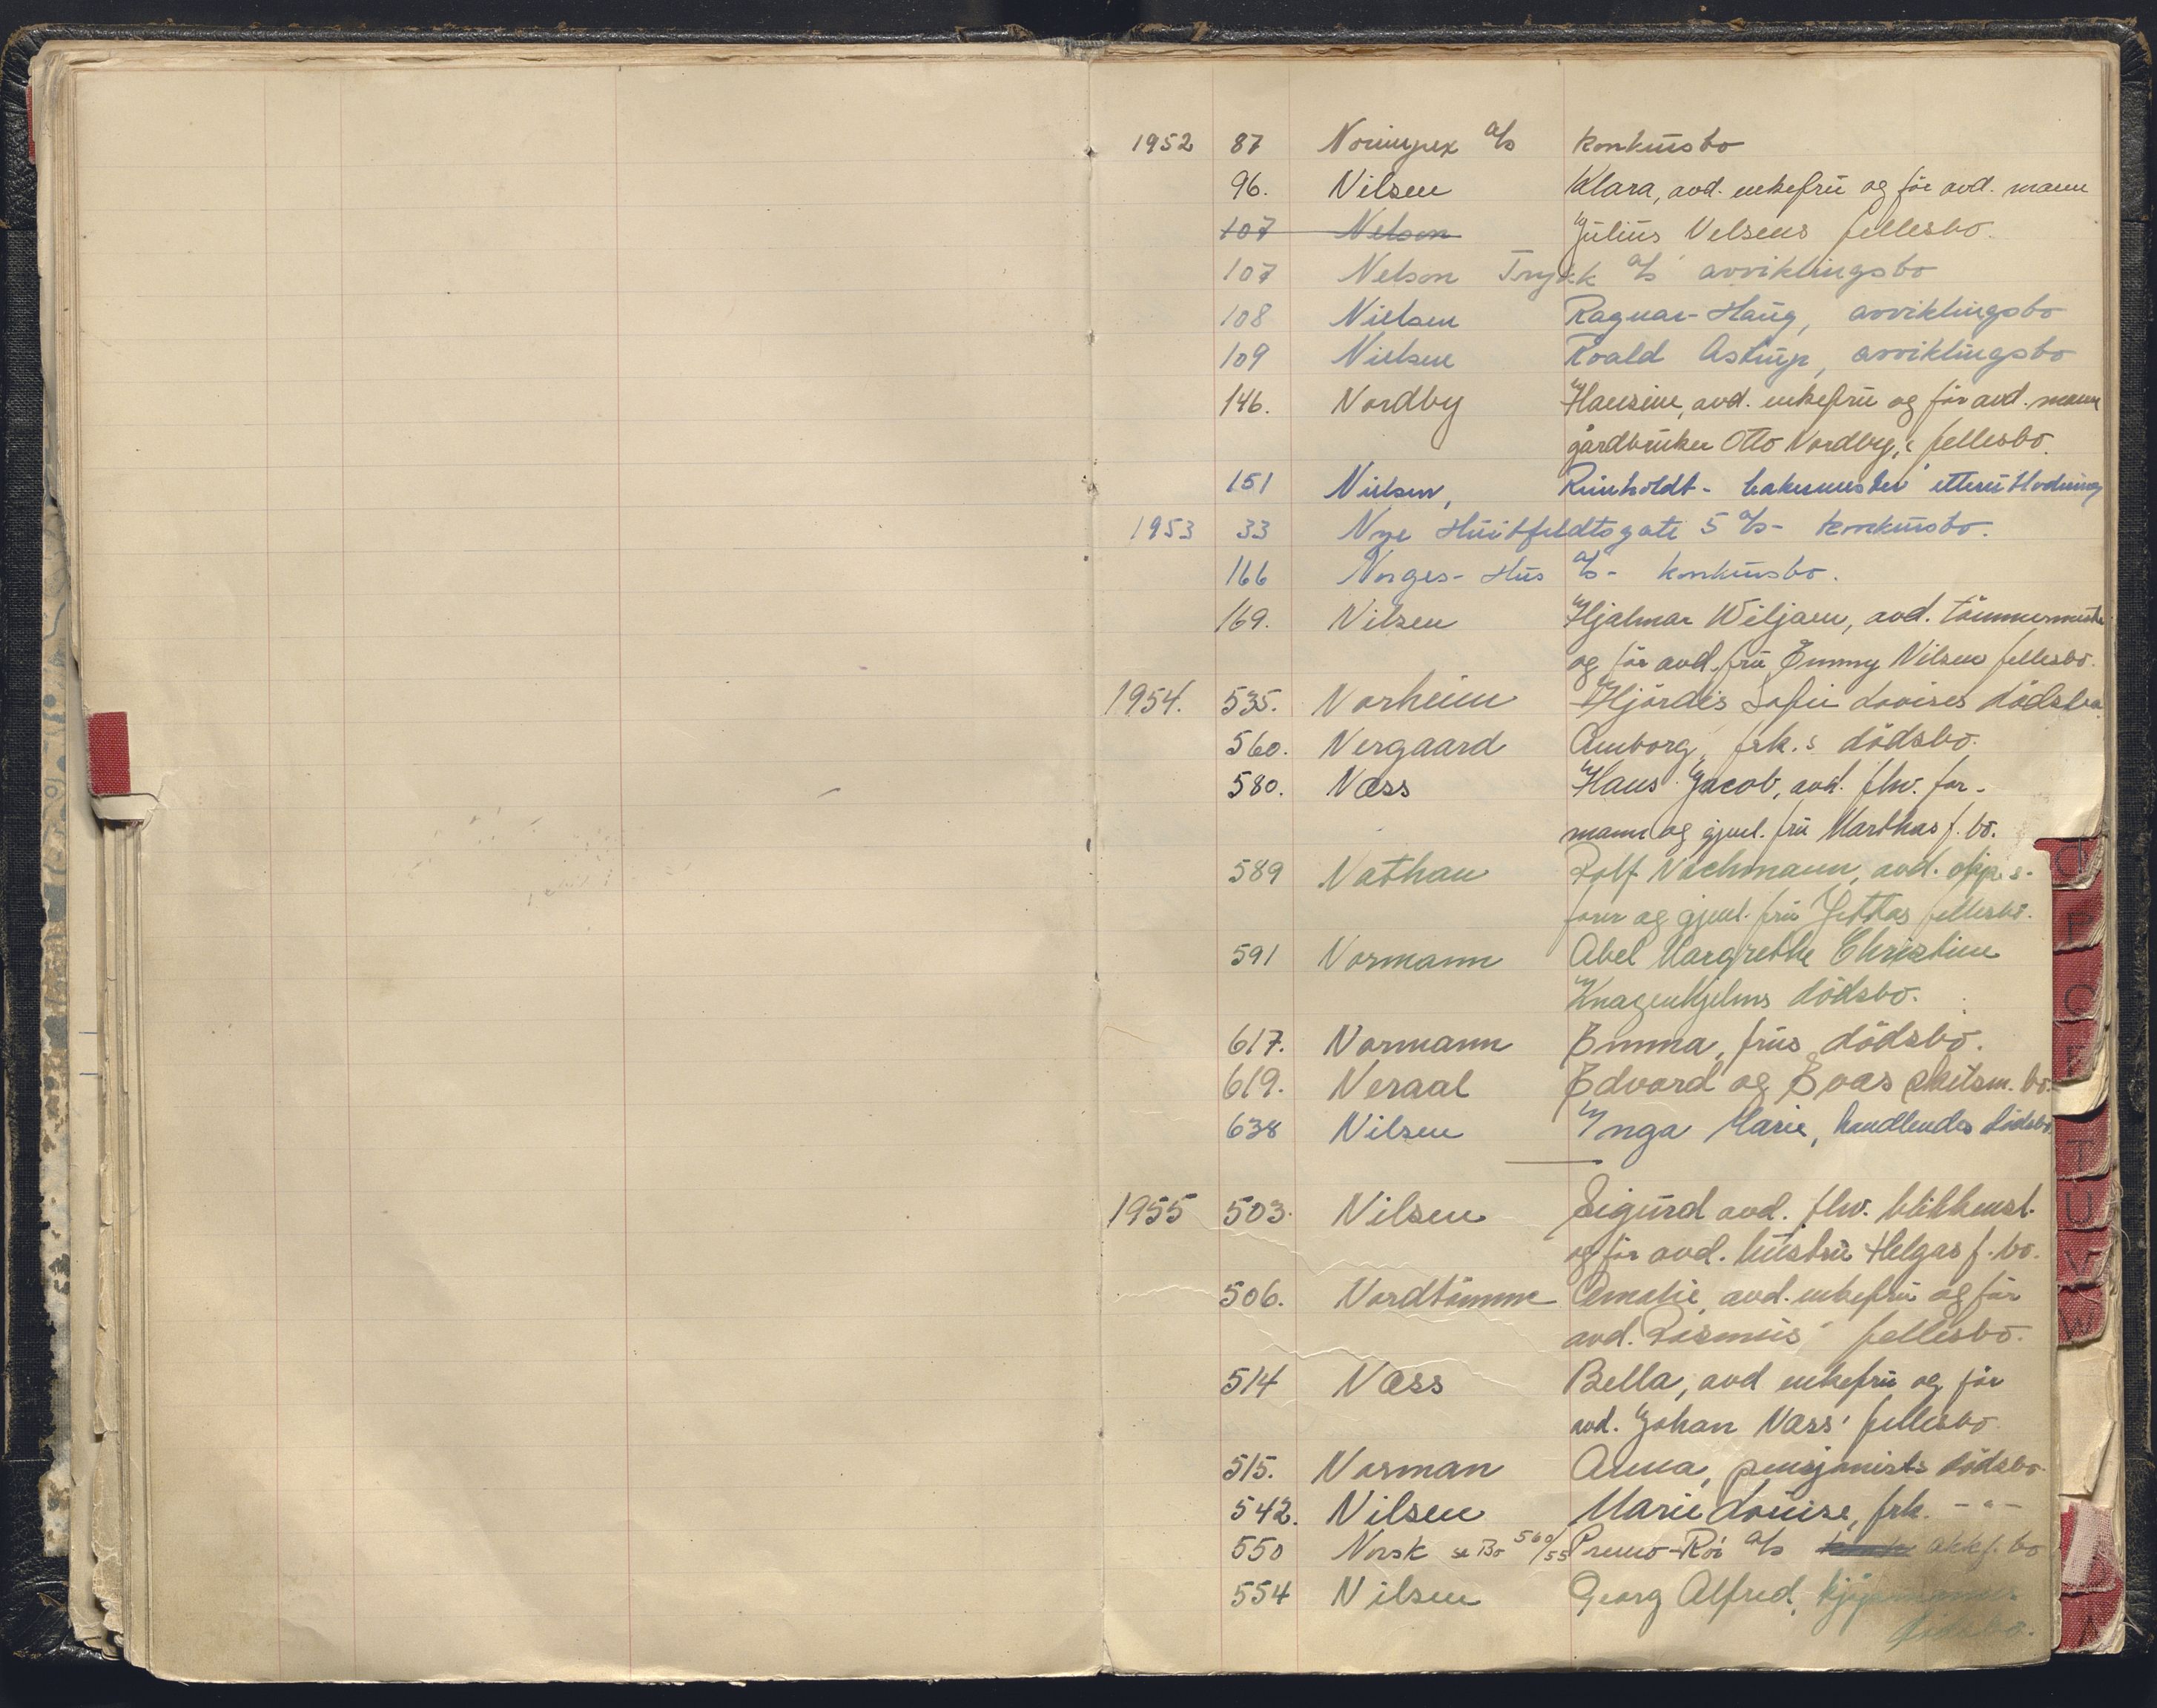 1952 87 Norimpex a/s konkursbo
96. Nilsen Klara, avd. enkefru og før avd. mann
107 Nelson Julius Nilsens fellesbo.
107 Nelson Trykk a/s avviklingsbo
108 Nielsen Ragnar-Haug, avviklingsbo
109 Nielsen Roald Astrup, avviklingsbo
146. Nordby Hansine, avd. enkefru og før avd. mann
gårdbruker Otto Nordby's fellesbo.
151 Nielsen, Reinholdt - bakermester etterutlodning
1953 33 Nye Huitfeldtsgate 5 a/s - konkursbo.
166 Norges-Hus a/s - konkursbo.
169. Nilsen Hjalmar Wiljam, avd. tømmermester
og før avd. fru Emmy Nilsens fellesbo.
1954. 535. Norheim Hjørdis Sofie Lovises dödsbo
560. Nergaard Amborg, frk.s dödsbo.
580. Næss Hans Jacob, avd. fhv. for-
mann og gjenl. fru Marthas f. bo.
589 Nathan Rolf Nachmann, avd.
fører og gjenl. fru Jettas fellesbo.
591 Normann Abel Margrethe Christine
Knagenhjelms dödsbo.
617. Normann Emma, frus dödsbo.
619. Neraal Edvard og Evas skilsm. bo.
638 Nilsen Inga Marie, handlendes dödsbo.
1955 503. Nilsen Sigurd avd. fhv. blikkensl.
og før avd. hustru Helgas f. bo.
506. Nordtömme Amalie, avd. enkefru og før
avd. Rasmus' fellesbo.
514 Næss Bella, avd enkefru og før
avd. Johan Næss' fellesbo.
515. Norman Anna, pensjonists dödsbo.
542. Nilsen Marie Louise, frk. - " -
550 Norsk se Bo 560/55 Premo-Rör a/s akkf. bo
554 Nilsen Georg Alfred,
dödsbo.
P
T
U
V
W